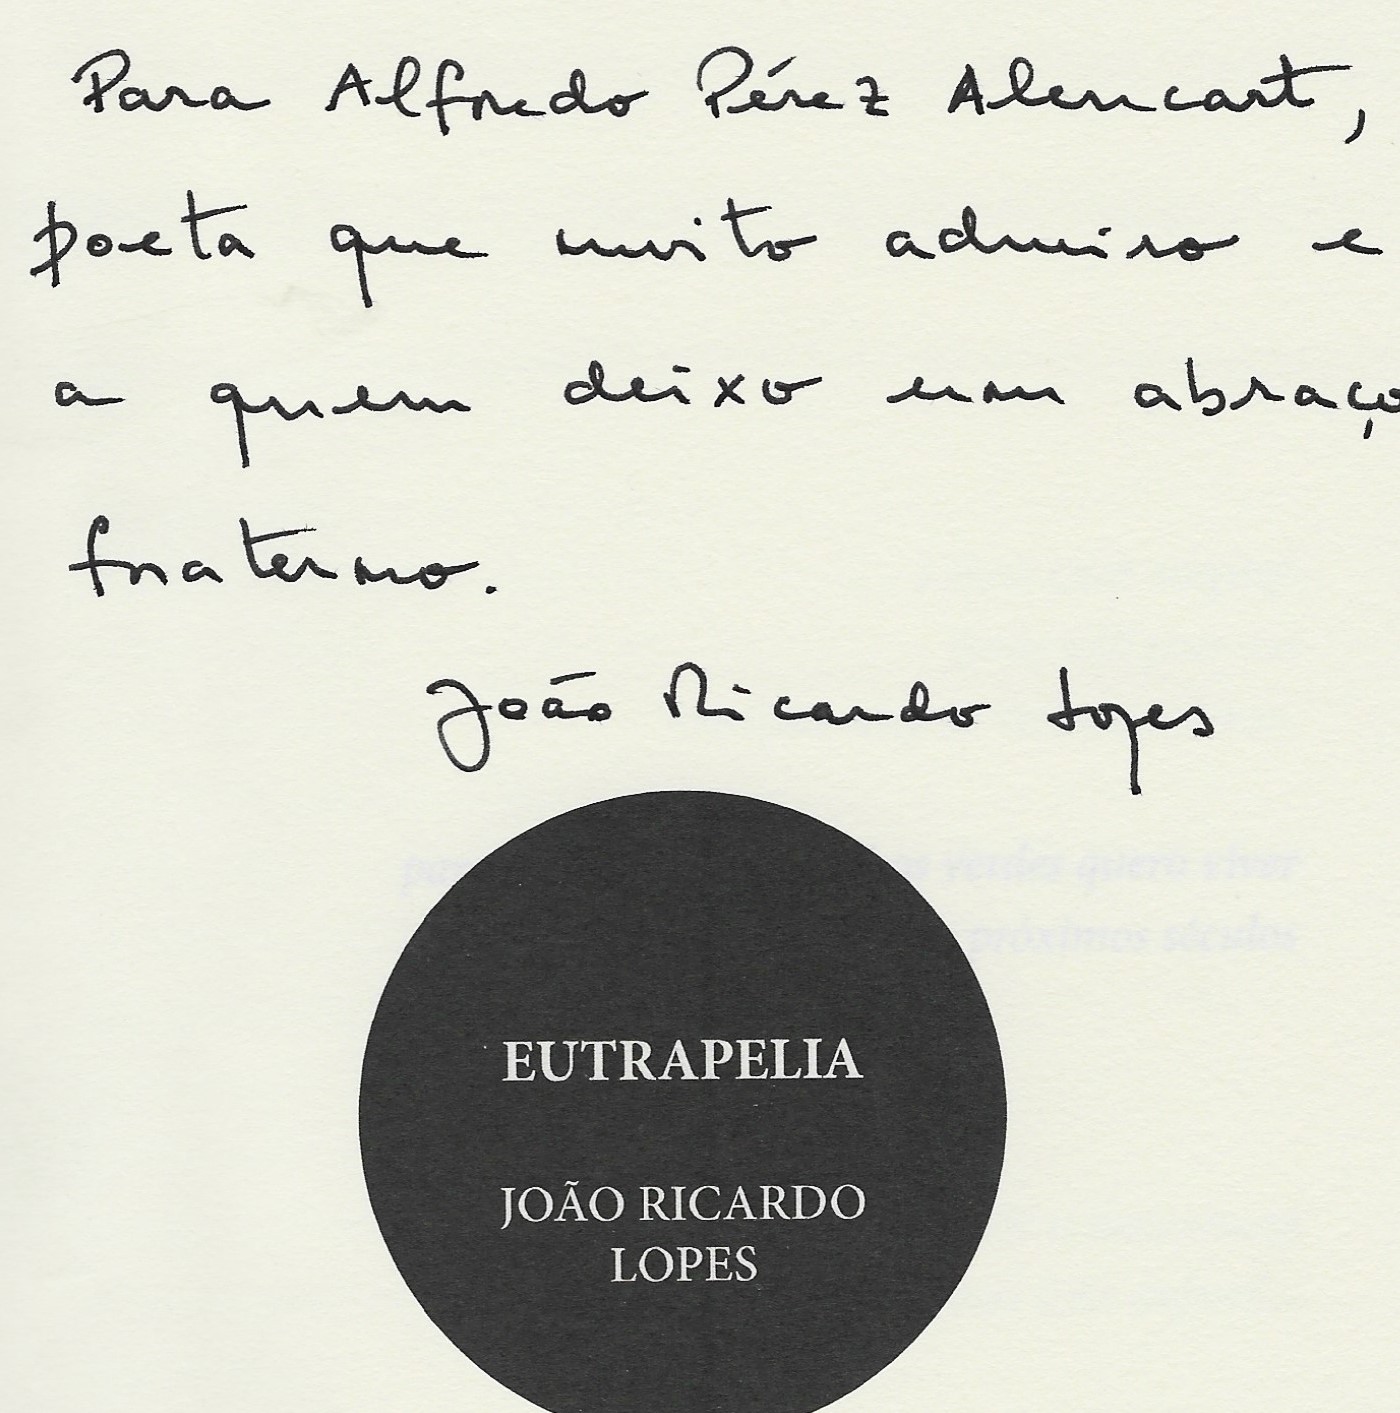 Para Alfredo Pérez Alencart,
poeta que muito admiro e
a quem deixo um abraço
fraterno.
João Ricardo Lopes
quero viver
próximos séculos
EUTRAPELIA
JOÃO RICARDO
LOPES